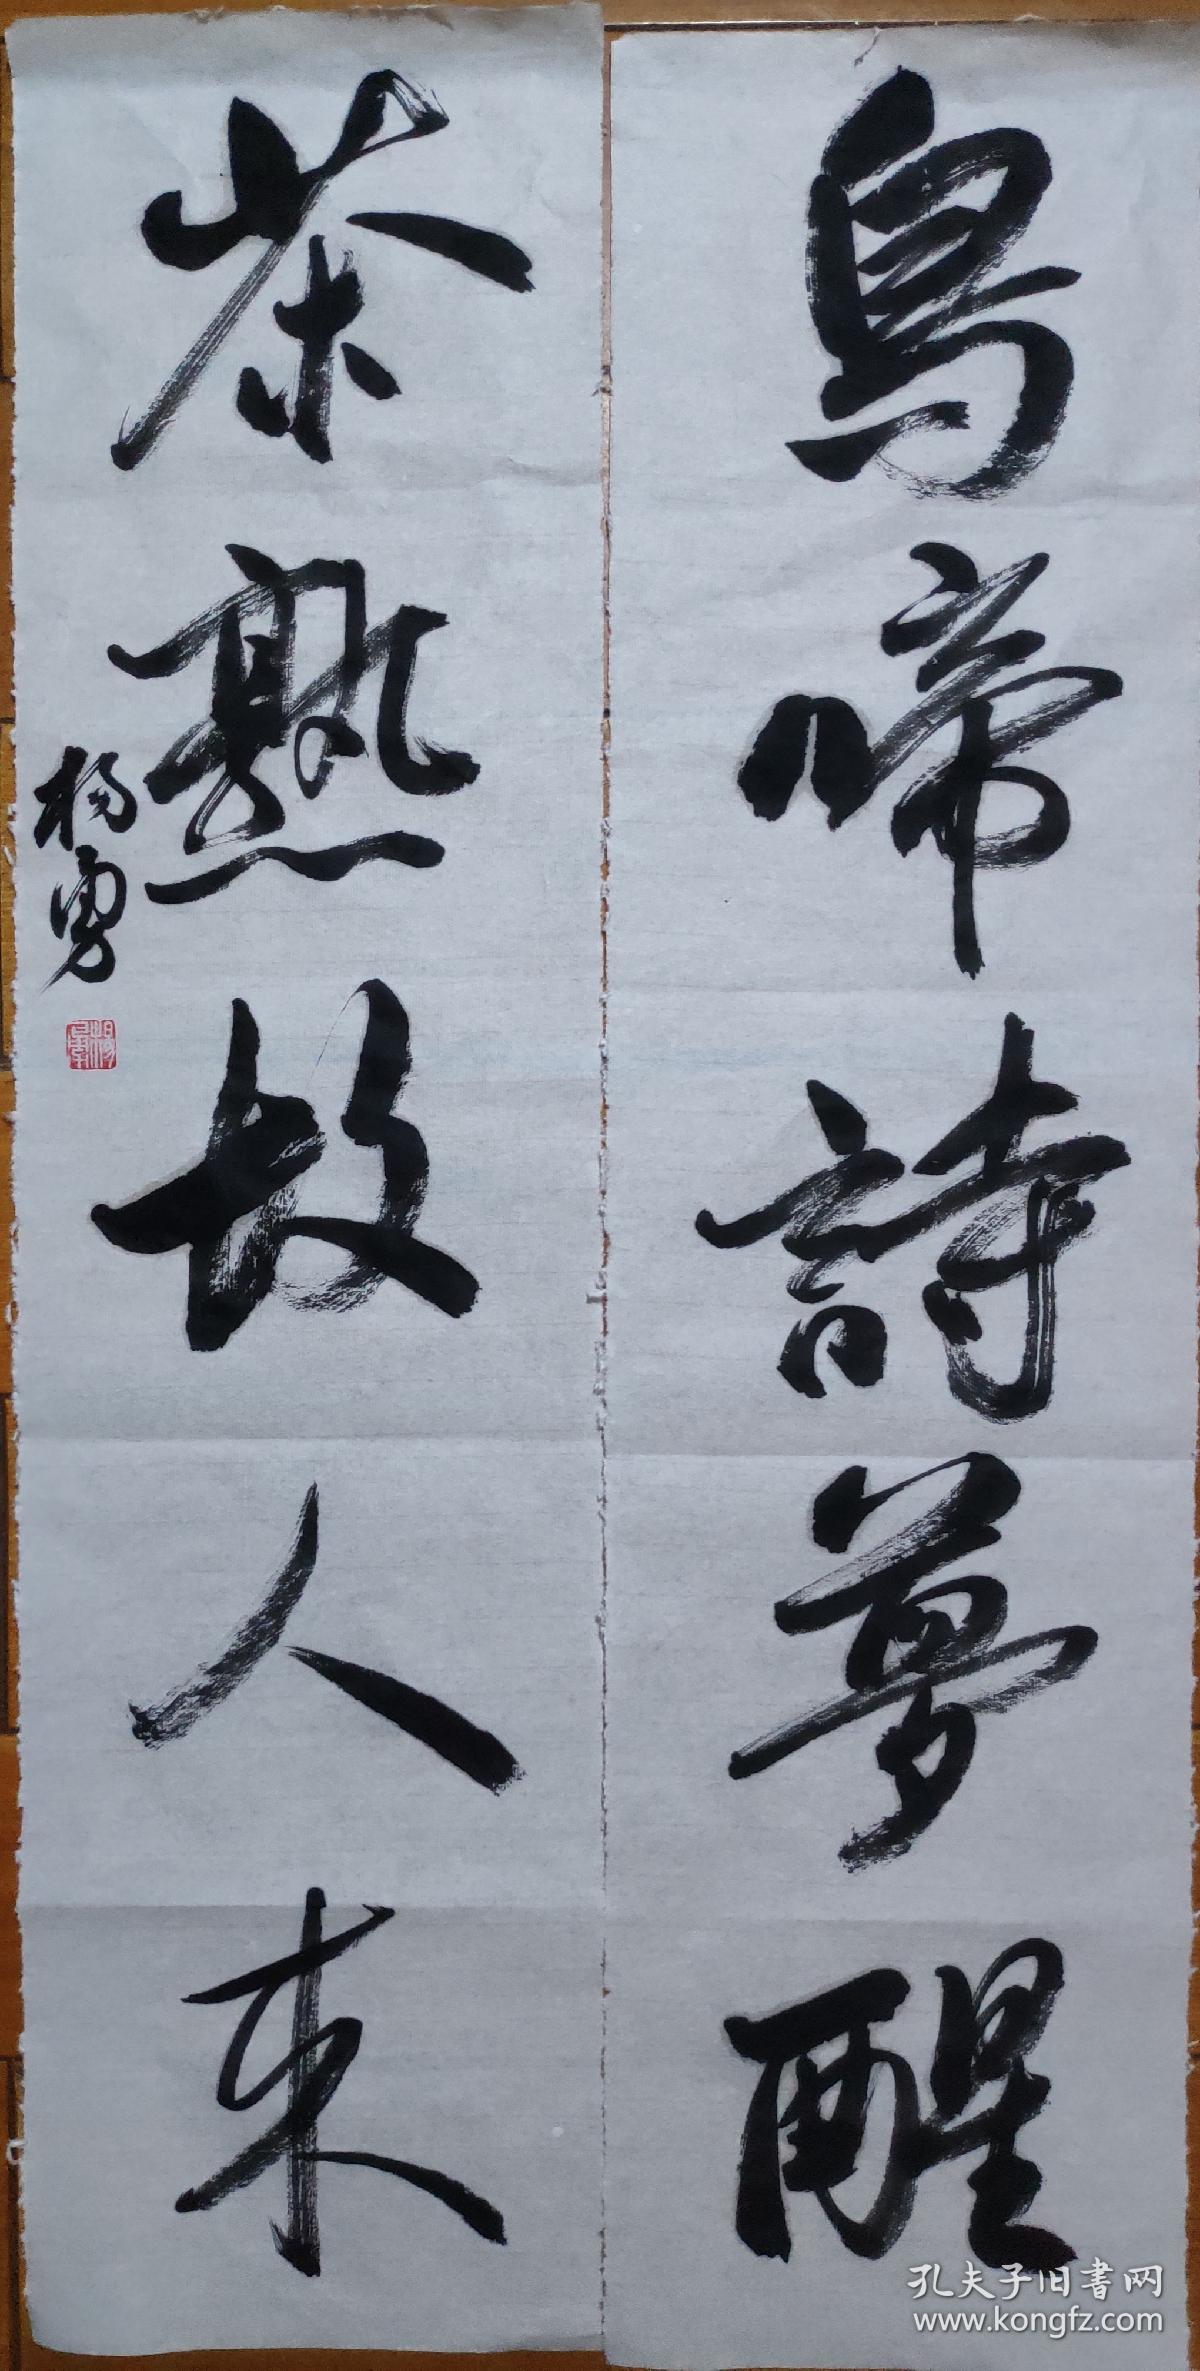 鳥啼詩夢醒
茶熟故人来
楊勇
孔夫子旧書网
www.kongfz.com